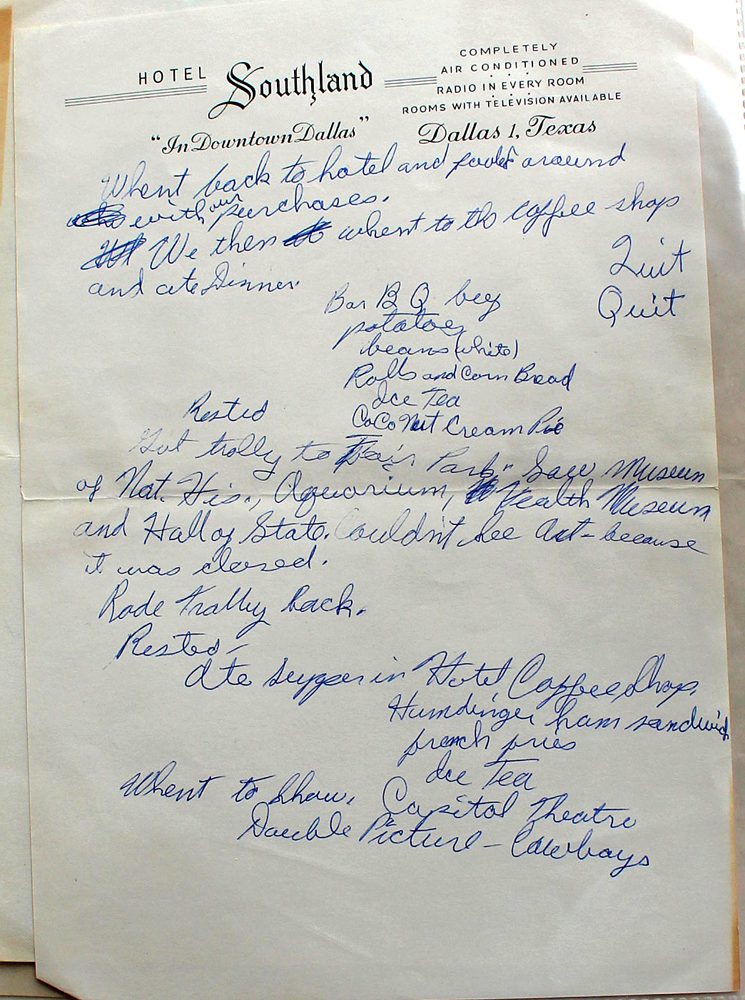 HOTEL Southland
"In Downtown Dallas"
COMPLETELY
AIR CONDITIONED
RADIO IN EVERY ROOM
ROOMS WITH TELEVISION AVAILABLE
Dallas 1, Texas
Whent back to hotel and around
with our purchases.
We then whent to the coffee shop
and ate Dinner.
Quit
Quit
Bar B Q beef
potatoes
beans (white)
Rolls and Corn Bread
Ice Tea
CoCoNut Cream Pie
Rested
Got trolly to Fair Park. Saw Museum
of Nat. His., Aquarium, Health Museum
and Hall of State. Couldn't see Art - because
it was closed.
Rode trolly back.
Rested -
Ate supper in Hotel Coffee Shop.
Humdinger ham sandwich
french fries
Ice Tea
Whent to show. Capitol Theatre
Double Picture - Cowboys